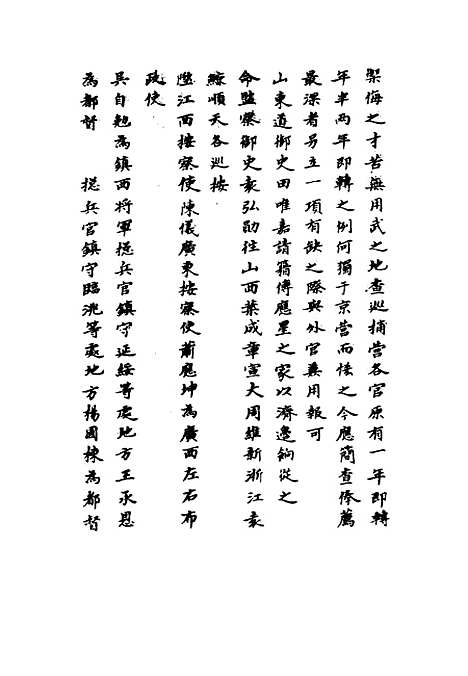 禦侮之才苦無用武之地查巡捕營各官原有一年即轉
年半兩年即轉之例何獨于京營而怪之今應簡查俸薦
最深者另立一項有缺之際與外官兼用報可
山東道御史田唯嘉請籍傅應星之家以濟邊餉從之
命監察御史袁弘勛往山西葉成章宣大周維新浙江袁
鯨順天各巡按
陞江西按察使陳儀廣東按察使蕭應坤為廣西左右布
政使
吳自勉為鎮西將軍摠兵官鎮守延綏等處地方王承恩
為都督 摠兵官鎮守臨洮等處地方楊國棟為都督